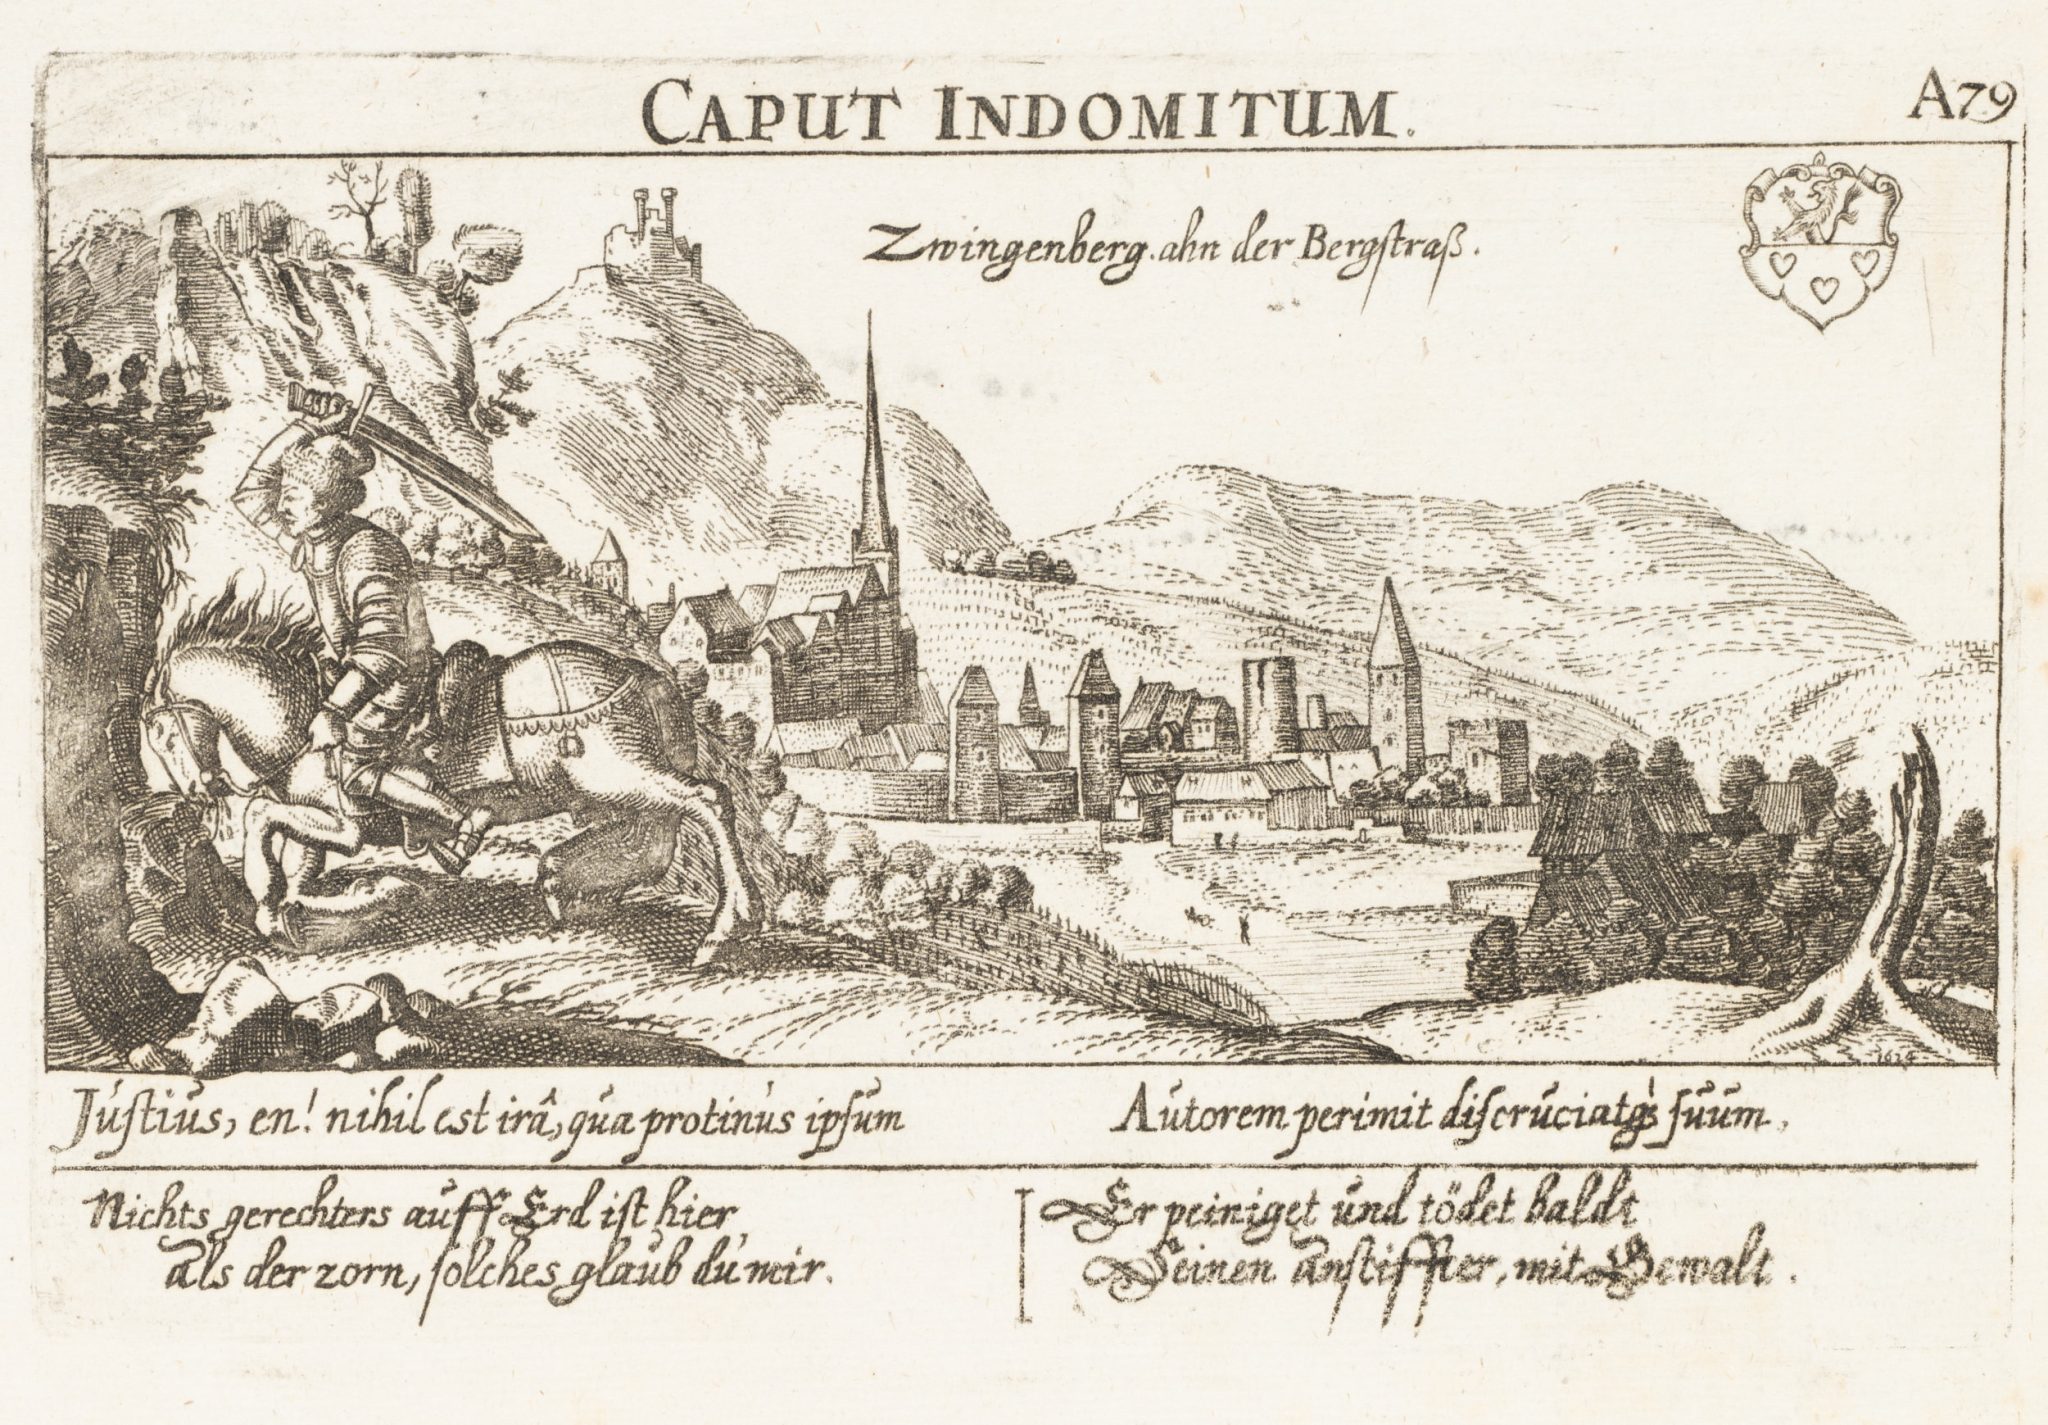 CAPUT INDOMITUM.
A79
Zwingenberg. ahn der Bergſtraß.
1624
Juſtius, en! nihil est irâ, qua protinus ipſum
Autorem perimit diſcruciatq́ȝ ſuum.
Nichts gerechters auff Erd iſt hier
als der zorn, ſolches glaub du mir.
Er peiniget und tödet baldt
Seinen anſtiffter, mit Gewalt.